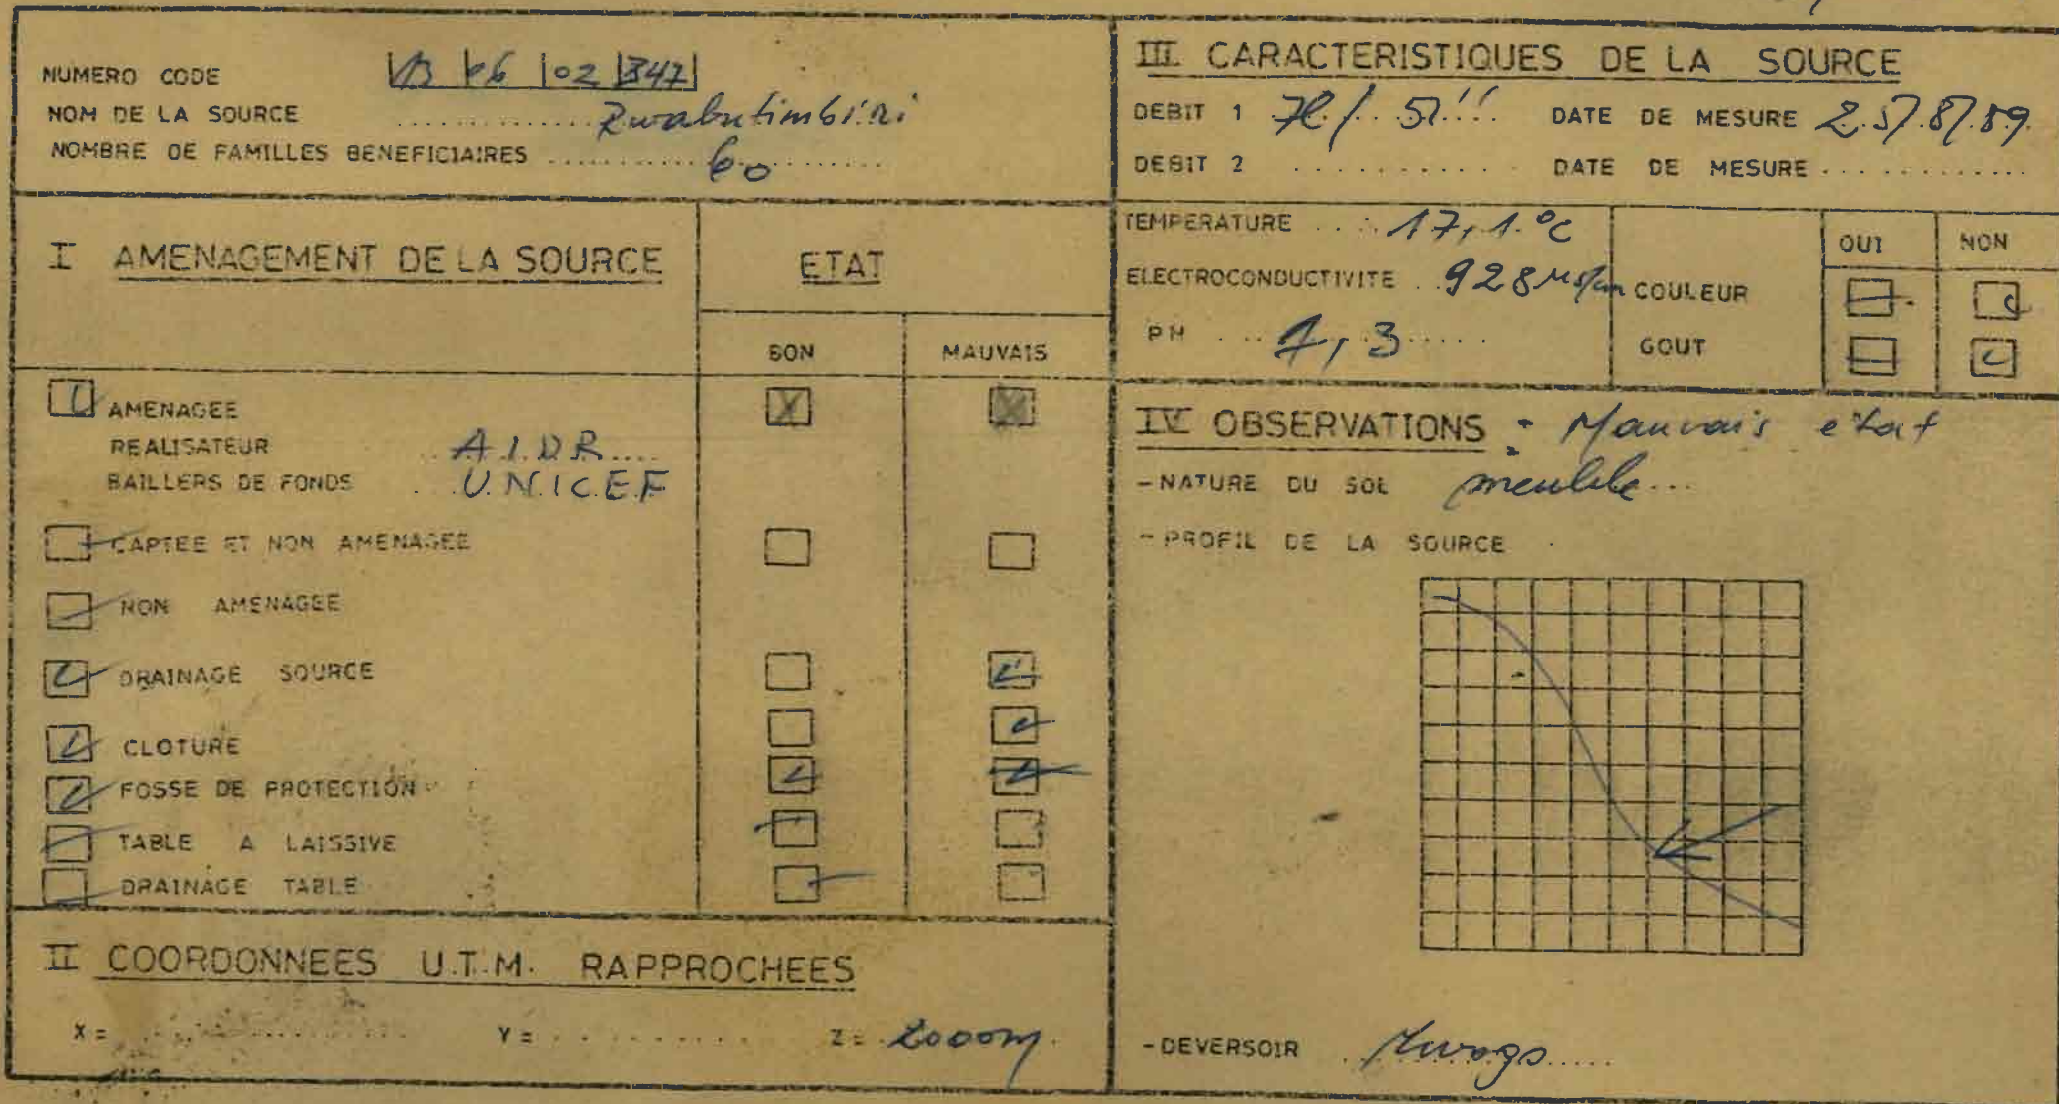 NUMERO CODE 02 347
NOM DE LA SOURCE Rwabutimbiri
NOMBRE DE FAMILLES BENEFICIAIRES 60
I AMENAGEMENT DE LA SOURCE
ETAT
BON MAUVAIS
AMENAGEE
REALISATEUR A.I.D.R
BAILLERS DE FONDS U.N.I.C.E.F
CAPTEE ET NON AMENAGEE
NON AMENAGEE
DRAINAGE SOURCE
CLOTURE
FOSSE DE PROTECTION
TABLE A LAISSIVE
DRAINAGE TABLE
II COORDONNEES U.T.M. RAPPROCHEES
X = Y = Z = 2000m
III CARACTERISTIQUES DE LA SOURCE
DEBIT 1 DATE DE MESURE
DEBIT 2 DATE DE MESURE
TEMPERATURE 17,1°C
ELECTROCONDUCTIVITE 928 µs/cm
PH
OUI NON
COULEUR
GOUT
IV OBSERVATIONS : Mauvais etat
- NATURE DU SOL meuble
- PROFIL DE LA SOURCE
- DEVERSOIR